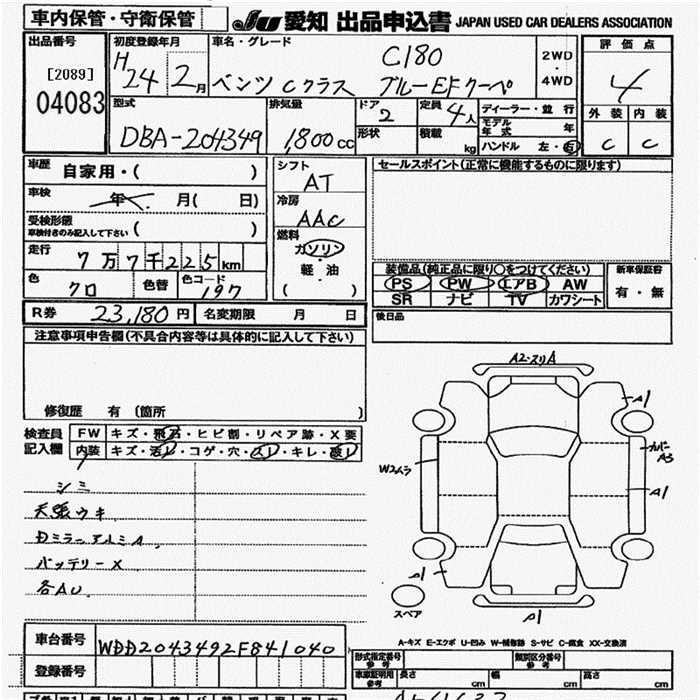 車内保管・守衛保管 JU 愛知 出品申込書 JAPAN USED CAR DEALERS ASSOCIATION
出品番号 初度登録年月 車名・グレード 2WD・4WD 評価点
[2089] H24年2月 C180 4
04083 ベンツ Cクラス ブルーEFクーペ
型式 排気量 ドア 定員 ディーラー・並行 外装 内装
DBA-204349 1,800cc 2 4人 モデル年式 年 C C
形状 積載 kg ハンドル 左・右
車歴 自家用・( ) シフト AT セールスポイント(正常に機能するものに限ります)
車検 年 月( 日) 冷房 AAC
受検形態 車検付きのみ記入して下さい ( ) 燃料
走行 7万7千225km ガソリン・軽・油 ( )
色 クロ 色替 色コード 197
装備品(純正品に限り○をつけてください) 新車保証書
PS PW エアB AW 有・無
SR ナビ TV カワシート
R券 23,180円 名変期限 月 日 後日品
注意事項申告欄(不具合内容等は具体的に記入して下さい)
修復歴 有 (箇所 )
検査員記入欄 FW キズ・飛石・ヒビ割・リペア跡・X要
内装 キズ・汚レ・コゲ・穴・スレ・キレ・破レ
シミ
天張ウキ
Dミラーアルミ A
バッテリーX
各AU
A2-スリA
A1
カバー A3
W2ムラ
A1
A1
スペア
A1
A-キズ E-エクボ U-凹み W-補修跡 S-サビ C-腐食 XX-交換済
車台番号 WDD2043492F841040
登録番号
形式指定番号 参考 類別区分番号 参考
車庫証明用 参考 長さ cm 幅 cm 高さ cm